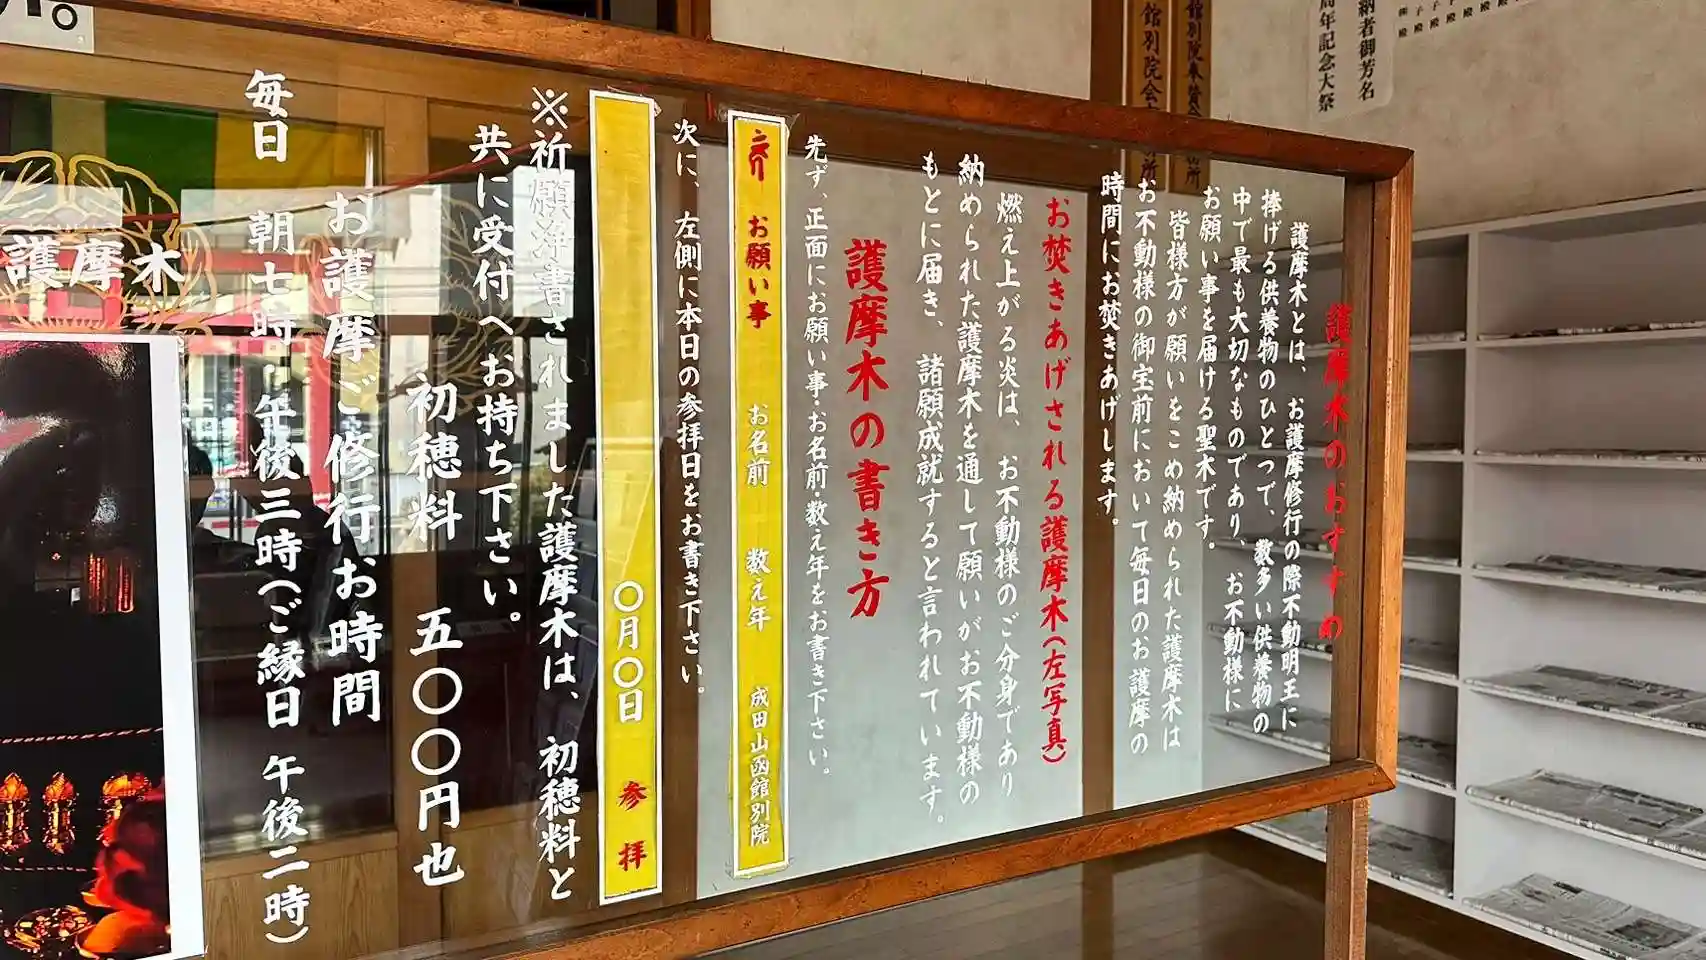 護摩木のおすすめ
護摩木とは、お護摩修行の際不動明王に
捧げる供養物のひとつで、数多い供養物の
中で最も大切なものであり、お不動様に
お願い事を届ける聖木です。
皆様方が願いをこめ納められた護摩木は
お不動様の御宝前において毎日のお護摩の
時間にお焚きあげします。
お焚きあげされる護摩木(左写真)
燃え上がる炎は、お不動様のご分身であり
納められた護摩木を通して願いがお不動様の
もとに届き、諸願成就すると言われています。
護摩木の書き方
先ず、正面にお願い事・お名前・数え年をお書き下さい。
お願い事 お名前 数え年 成田山函館別院
次に、左側に本日の参拝日をお書き下さい。
〇月〇日 参拝
※祈願浄書されました護摩木は、初穂料と
共に受付へお持ち下さい。
初穂料 五〇〇円也
お護摩ご修行お時間
毎日 朝七時・午後三時(ご縁日 午後二時)
護摩木
納者御芳名
周年記念大祭